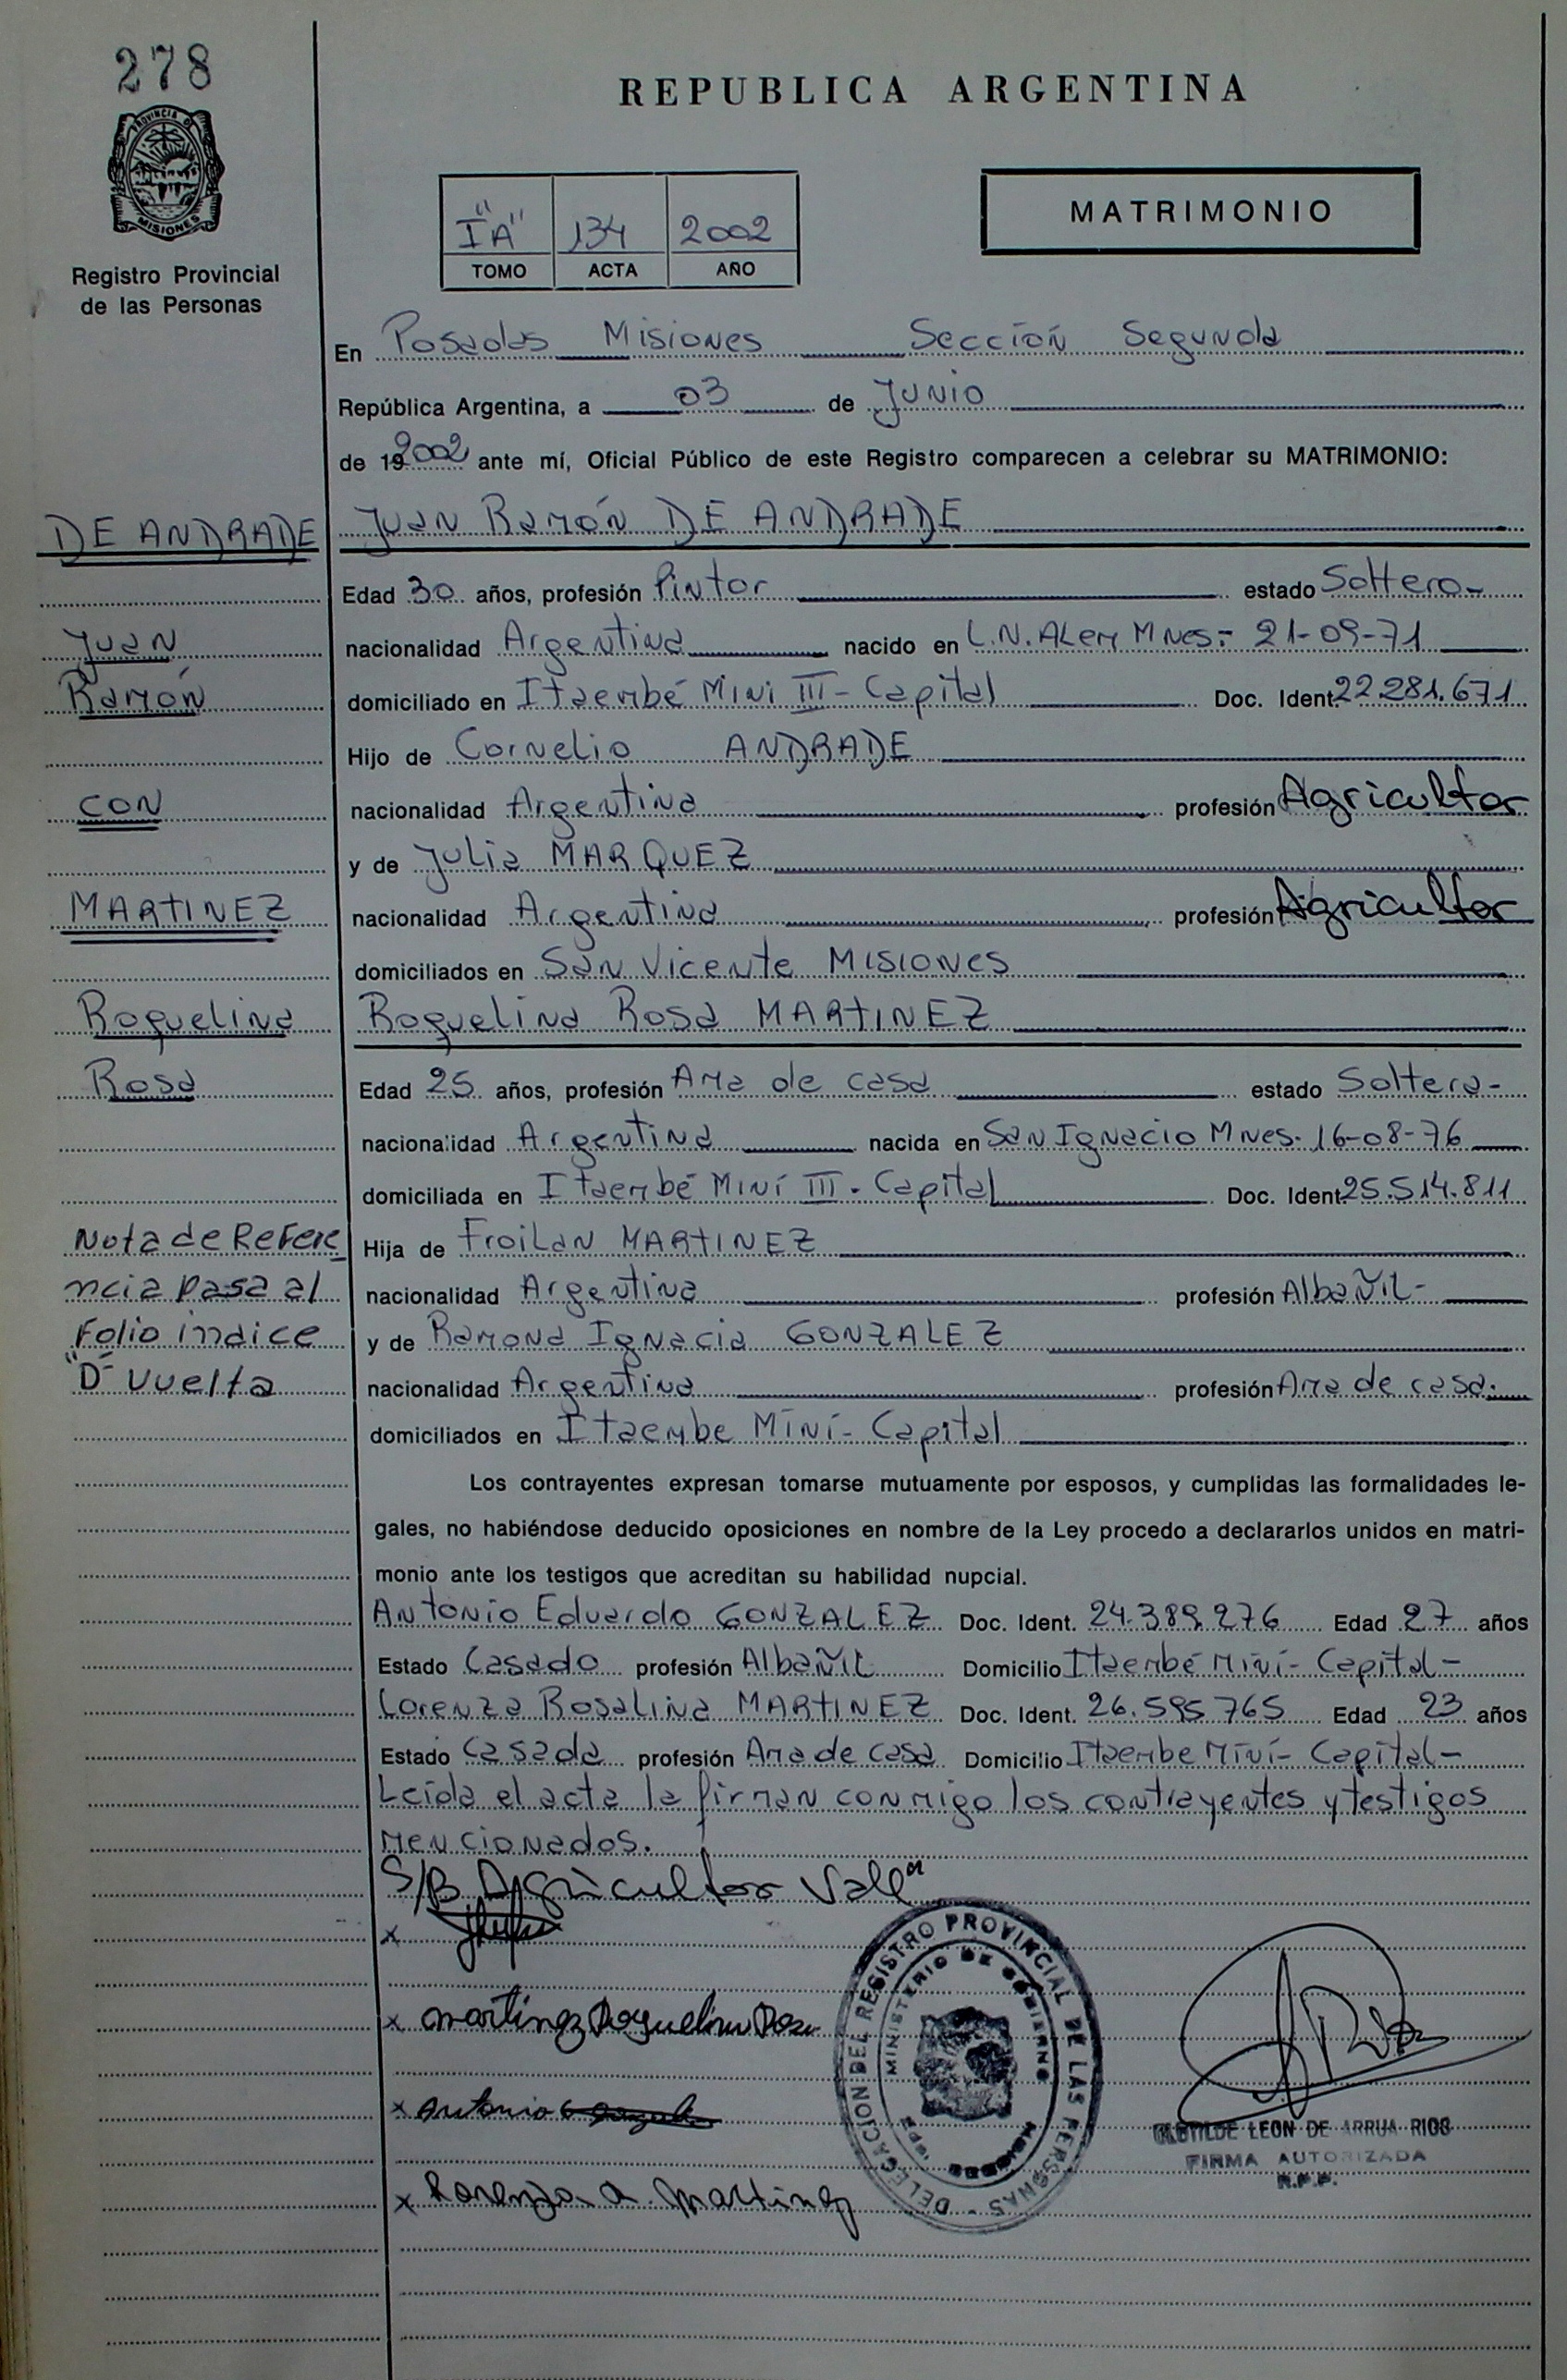 278
REPUBLICA ARGENTINA
PROVINCIA D
MISIONES
Registro Provincial
de las Personas
"IA" 134 2002
TOMO ACTA AÑO
MATRIMONIO
En Posadas Misiones Sección Segunda
República Argentina, a 03 de Junio
de 192002 ante mí, Oficial Público de este Registro comparecen a celebrar su MATRIMONIO:
DE ANDRADE Juan Ramón DE ANDRADE
Edad 30 años, profesión Pintor estado Soltero-
Juan nacionalidad Argentina nacido en L.N. Alem Mnes.- 21-09-71
Ramón domiciliado en Itaembé Mini III - Capital Doc. Ident. 22.281.671
Hijo de Cornelio ANDRADE
CON nacionalidad Argentina profesión Agricultor
y de Julia MARQUEZ
MARTINEZ nacionalidad Argentina profesión Agricultor
domiciliados en San Vicente Misiones
Roquelina Roquelina Rosa MARTINEZ
Rosa Edad 25 años, profesión Ama de casa estado Soltera-
nacionalidad Argentina nacida en San Ignacio Mnes. 16-08-76
domiciliada en Itaembé Miní III - Capital Doc. Ident. 25.514.811
Nota de Refere Hija de Froilan MARTINEZ
ncia pasa al nacionalidad Argentina profesión Albañil-
Folio indice y de Ramona Ignacia GONZALEZ
"D" Vuelta nacionalidad Argentina profesión Ama de casa.
domiciliados en Itaembe Miní - Capital
Los contrayentes expresan tomarse mutuamente por esposos, y cumplidas las formalidades le-
gales, no habiéndose deducido oposiciones en nombre de la Ley procedo a declararlos unidos en matri-
monio ante los testigos que acreditan su habilidad nupcial.
Antonio Eduardo GONZALEZ Doc. Ident. 24.389.276 Edad 27 años
Estado Casado profesión Albañil Domicilio Itaembé Miní - Capital -
Lorenza Rosalina MARTINEZ Doc. Ident. 26.595.765 Edad 23 años
Estado Casada profesión Ama de casa Domicilio Itaembe Miní - Capital -
Leída el acta la firman conmigo los contrayentes y testigos
mencionados.
S/B Agricultor Vale"
x
x Martinez Roquelina Rosa
x Antonio E Gonzalez
x Lorenza R. Martinez
DELEGACION DEL REGISTRO PROVINCIAL DE LAS PERSONAS -
MINISTERIO DE GOBIERNO
CLOTILDE LEON DE ARRUA RIOS
FIRMA AUTORIZADA
R.P.P.